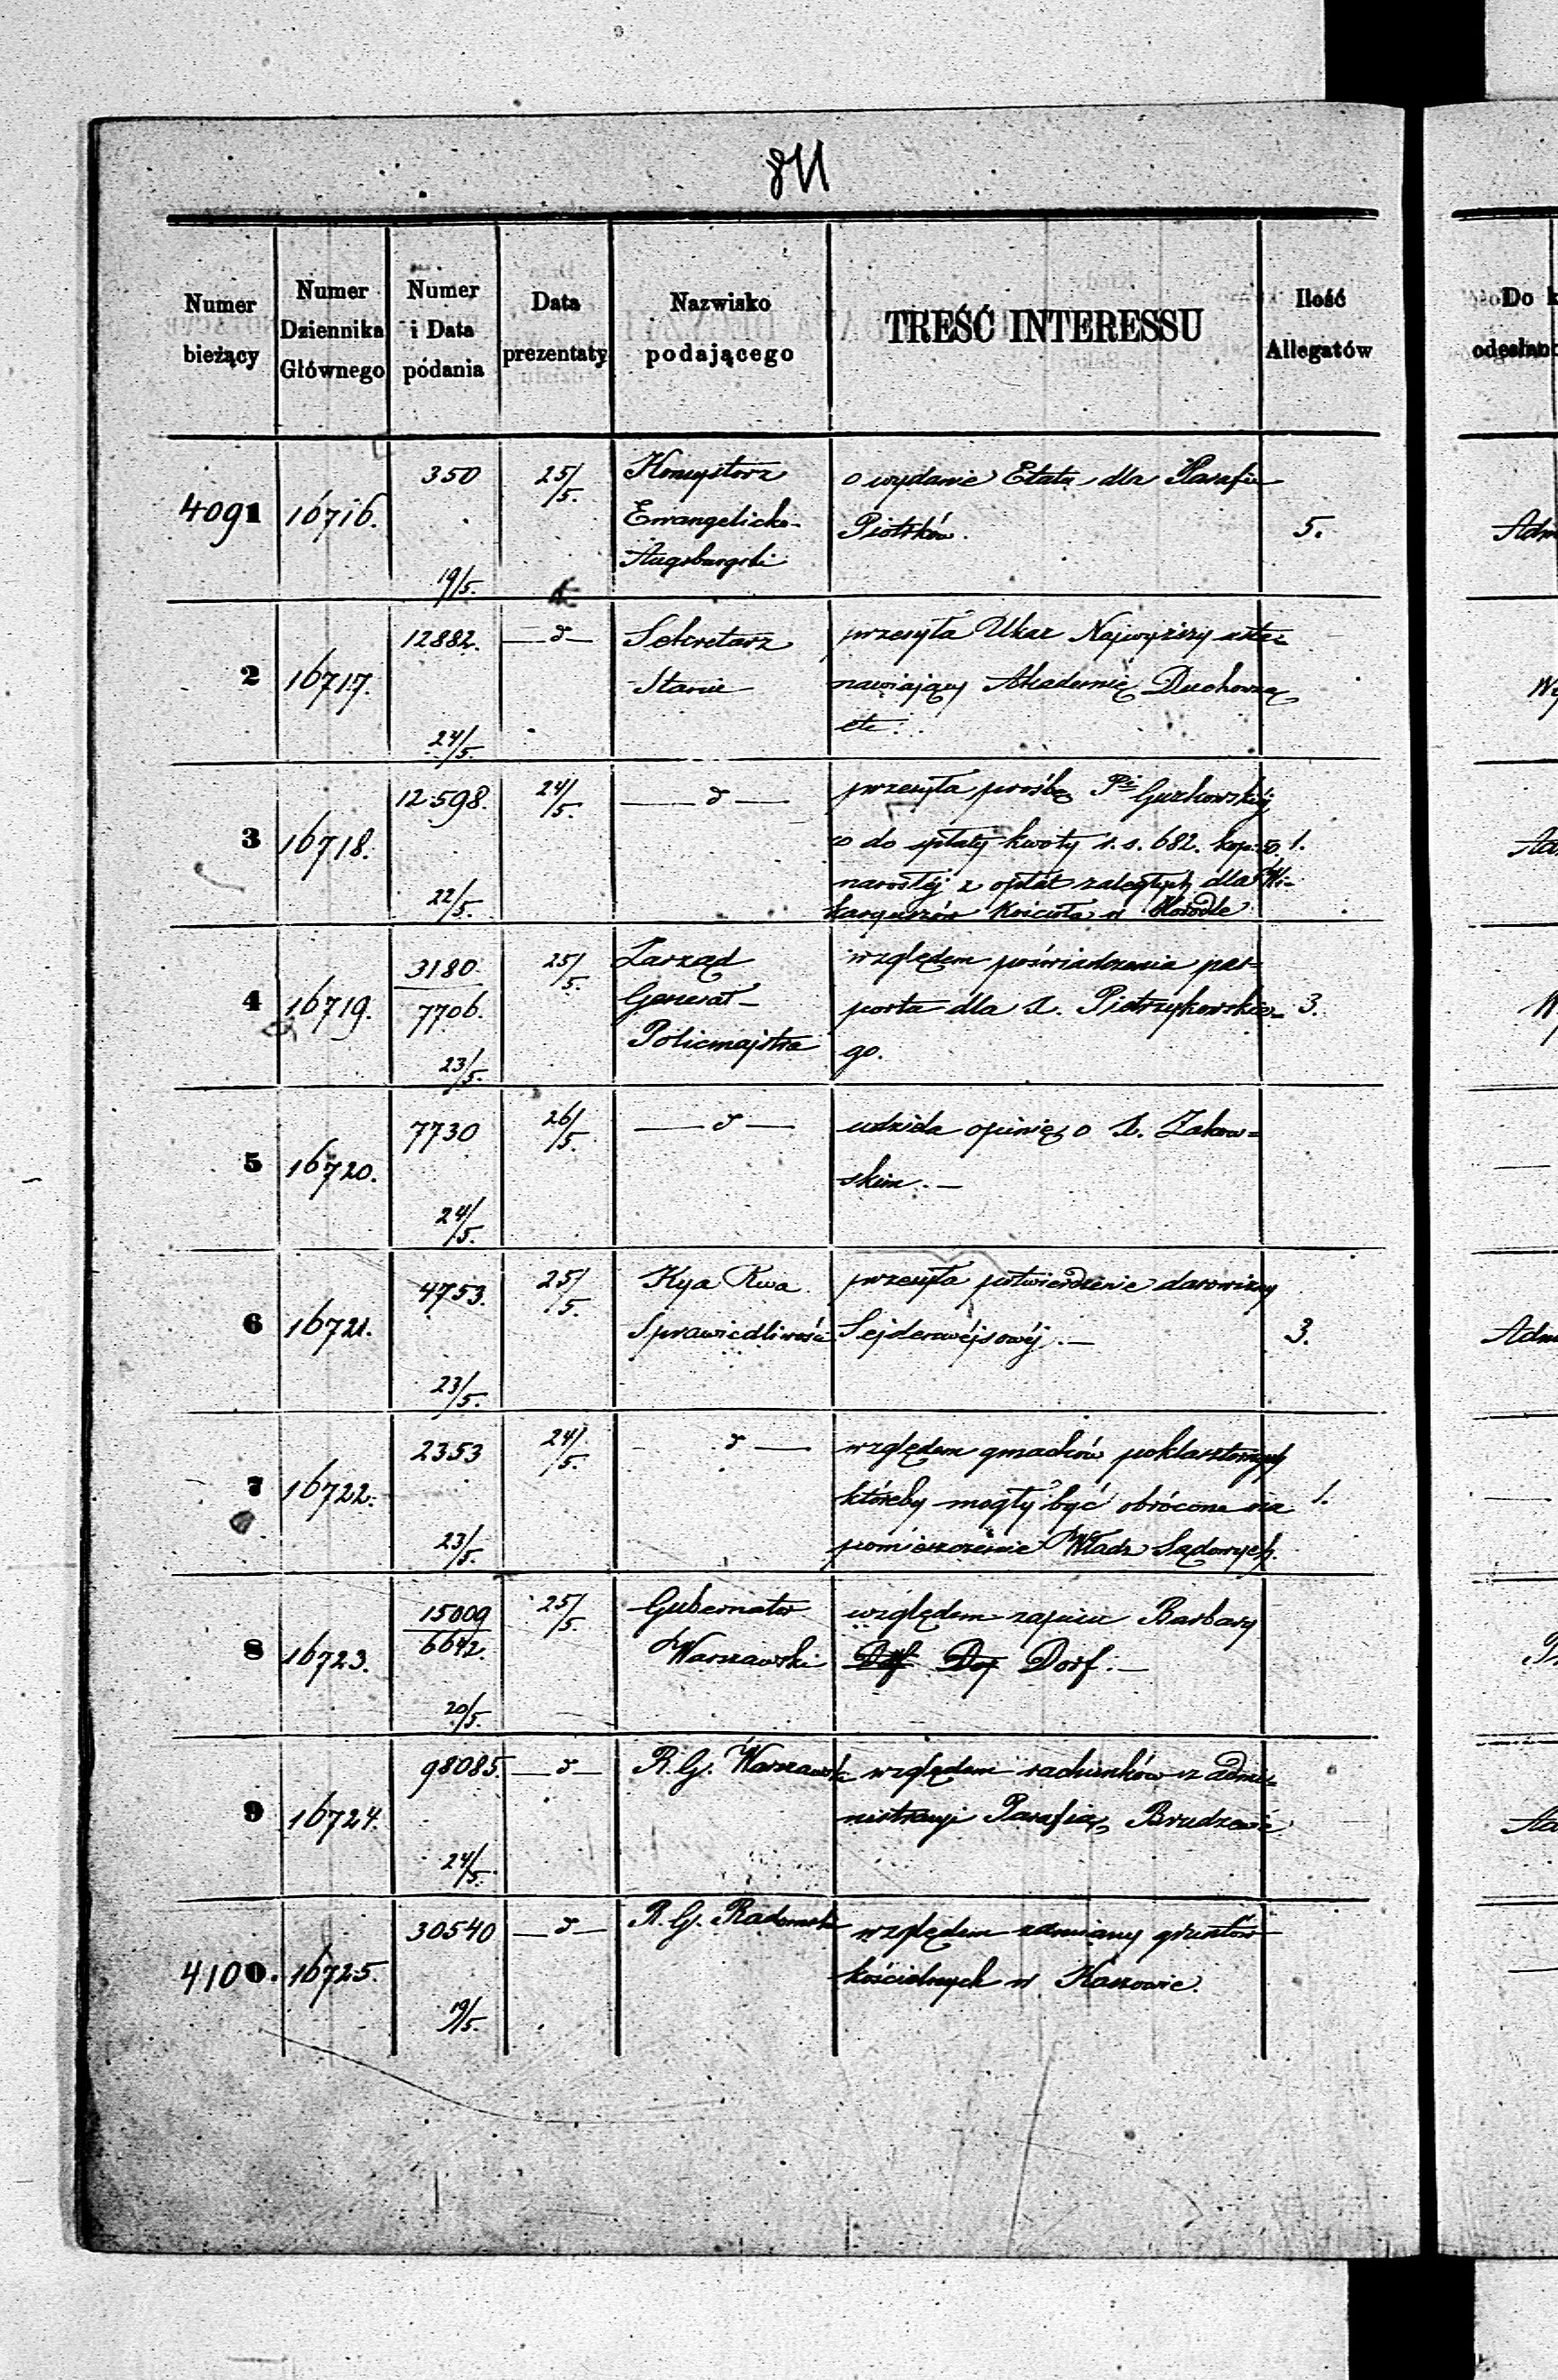 811
Numer bieżący
Numer Dziennika Głównego
Numer i Data podania
Data prezentaty
Nazwisko podającego
TREŚĆ INTERESSU
Ilość Allegatów
4091 16716. 350 19/5. 25/5.
Konsystorz
Ewangelicko-
Augsburgski
o wydanie Etatu dla Parafii
Piotrków.
5.
2 16717. 12882. 24/5. —d—
Sekretarz
Stanu
przesyła Ukaz Najwyższy usta-
nawiający Akademię Duchowną
etc.
3 16718. 12598. 22/5. 24/5. —d—
przesyła prośbę Pi Guzkowskiéj
co do spłaty kwoty r. s. 682. kop. 50,
narosłéj z opłat zaległych dla Wi-
karyuszów Kościoła w Horodle
1.
4 16719. 3180. 7706. 23/5. 25/5.
Zarząd
Generał-
Policmajstra
względem poświadczenia pas-
portu dla X. Pietrzykowskie-
go.
3.
5 16720. 7730 24/5. 26/5. —d—
udziela opinię o X. Zakow-
skim. —
6 16721. 4753. 23/5. 25/5.
Kya Rwa
Sprawiedliwości
przesyła potwierdzenie darowizny
Sejderwejsowéj. —
3.
7 16722. 2353 23/5. 24/5. d —
względem gmachów poklasztornych
któreby mogły być obrócone na
pomieszczenie Władz Sądowych.
1.
8 16723. 15009 6642. 20/5. 25/5.
Gubernator
Warszawski
względem zapisu Barbary
Dorf. —
9 16724. 98085. 24/5. —d—
R. G. Warszawski
względem rachunków z admi-
nistracyi Parafią Brudzewie
4100. 16725. 30540 19/5. —d—
R. G. Radomski
względem zamiany gruntów
kościelnych w Kaszowie.
Do k
odesłano